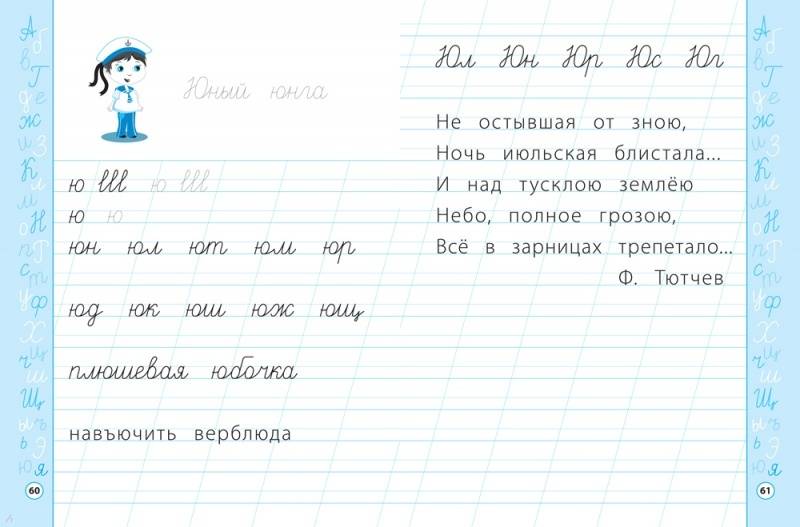 Юный юнга
ю ю
ю ю
юн юл ют юм юр
юд юк юш юж ющ
плюшевая юбочка
навъючить верблюда
60
Юл Юн Юр Юс Юг
Не остывшая от зною,
Ночь июльская блистала...
И над тусклою землёю
Небо, полное грозою,
Всё в зарницах трепетало...
Ф. Тютчев
61